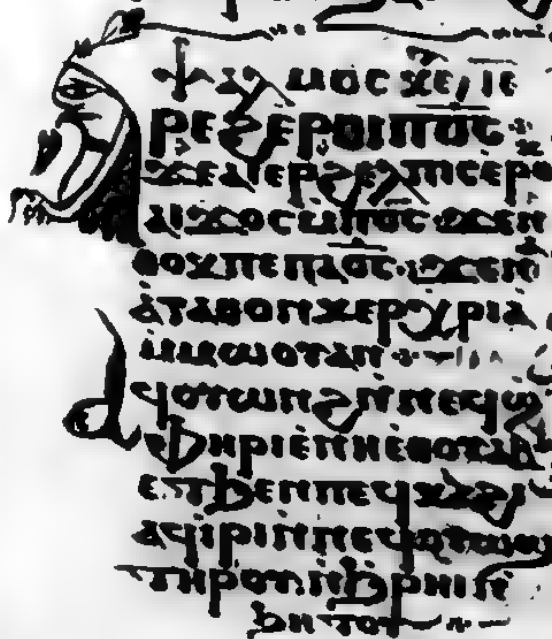 ⲯⲁⲗⲙⲟⲥ
ⲣⲉϩ ⲉⲣⲟⲓ ⲡⲟⲥ
ϫⲉ ⲁⲓⲉⲣϩⲉⲗⲡⲓⲥ ⲉⲣⲟ
ⲁⲓϫⲟⲥ ⲙⲡⲟⲥ ϫⲉ ⲛ
ⲑⲟⲕ ⲡⲉ ⲡⲁⲟⲥ · ϫⲉ ⲛ
ⲁⲅⲁⲑⲟⲛ ⲕⲉⲣⲭⲣⲓⲁ
ⲙⲙⲱⲟⲩ ⲁⲛ
ⲁϥⲟⲩⲱⲛϩ ⲛⲛⲉϥϣ
ⲫⲏⲣⲓ ⲉⲛⲏ ⲉⲑⲟⲩⲁⲃ
ⲉⲧϧⲉⲛ ⲡⲉϥⲕⲁϩⲓ
ⲁϥⲓⲣⲓ ⲛⲛⲉϥⲟⲩⲱϣ
ⲧⲏⲣⲟⲩ ⲛϧⲣⲏⲓ ⲛ
ϧⲏⲧⲟⲩ